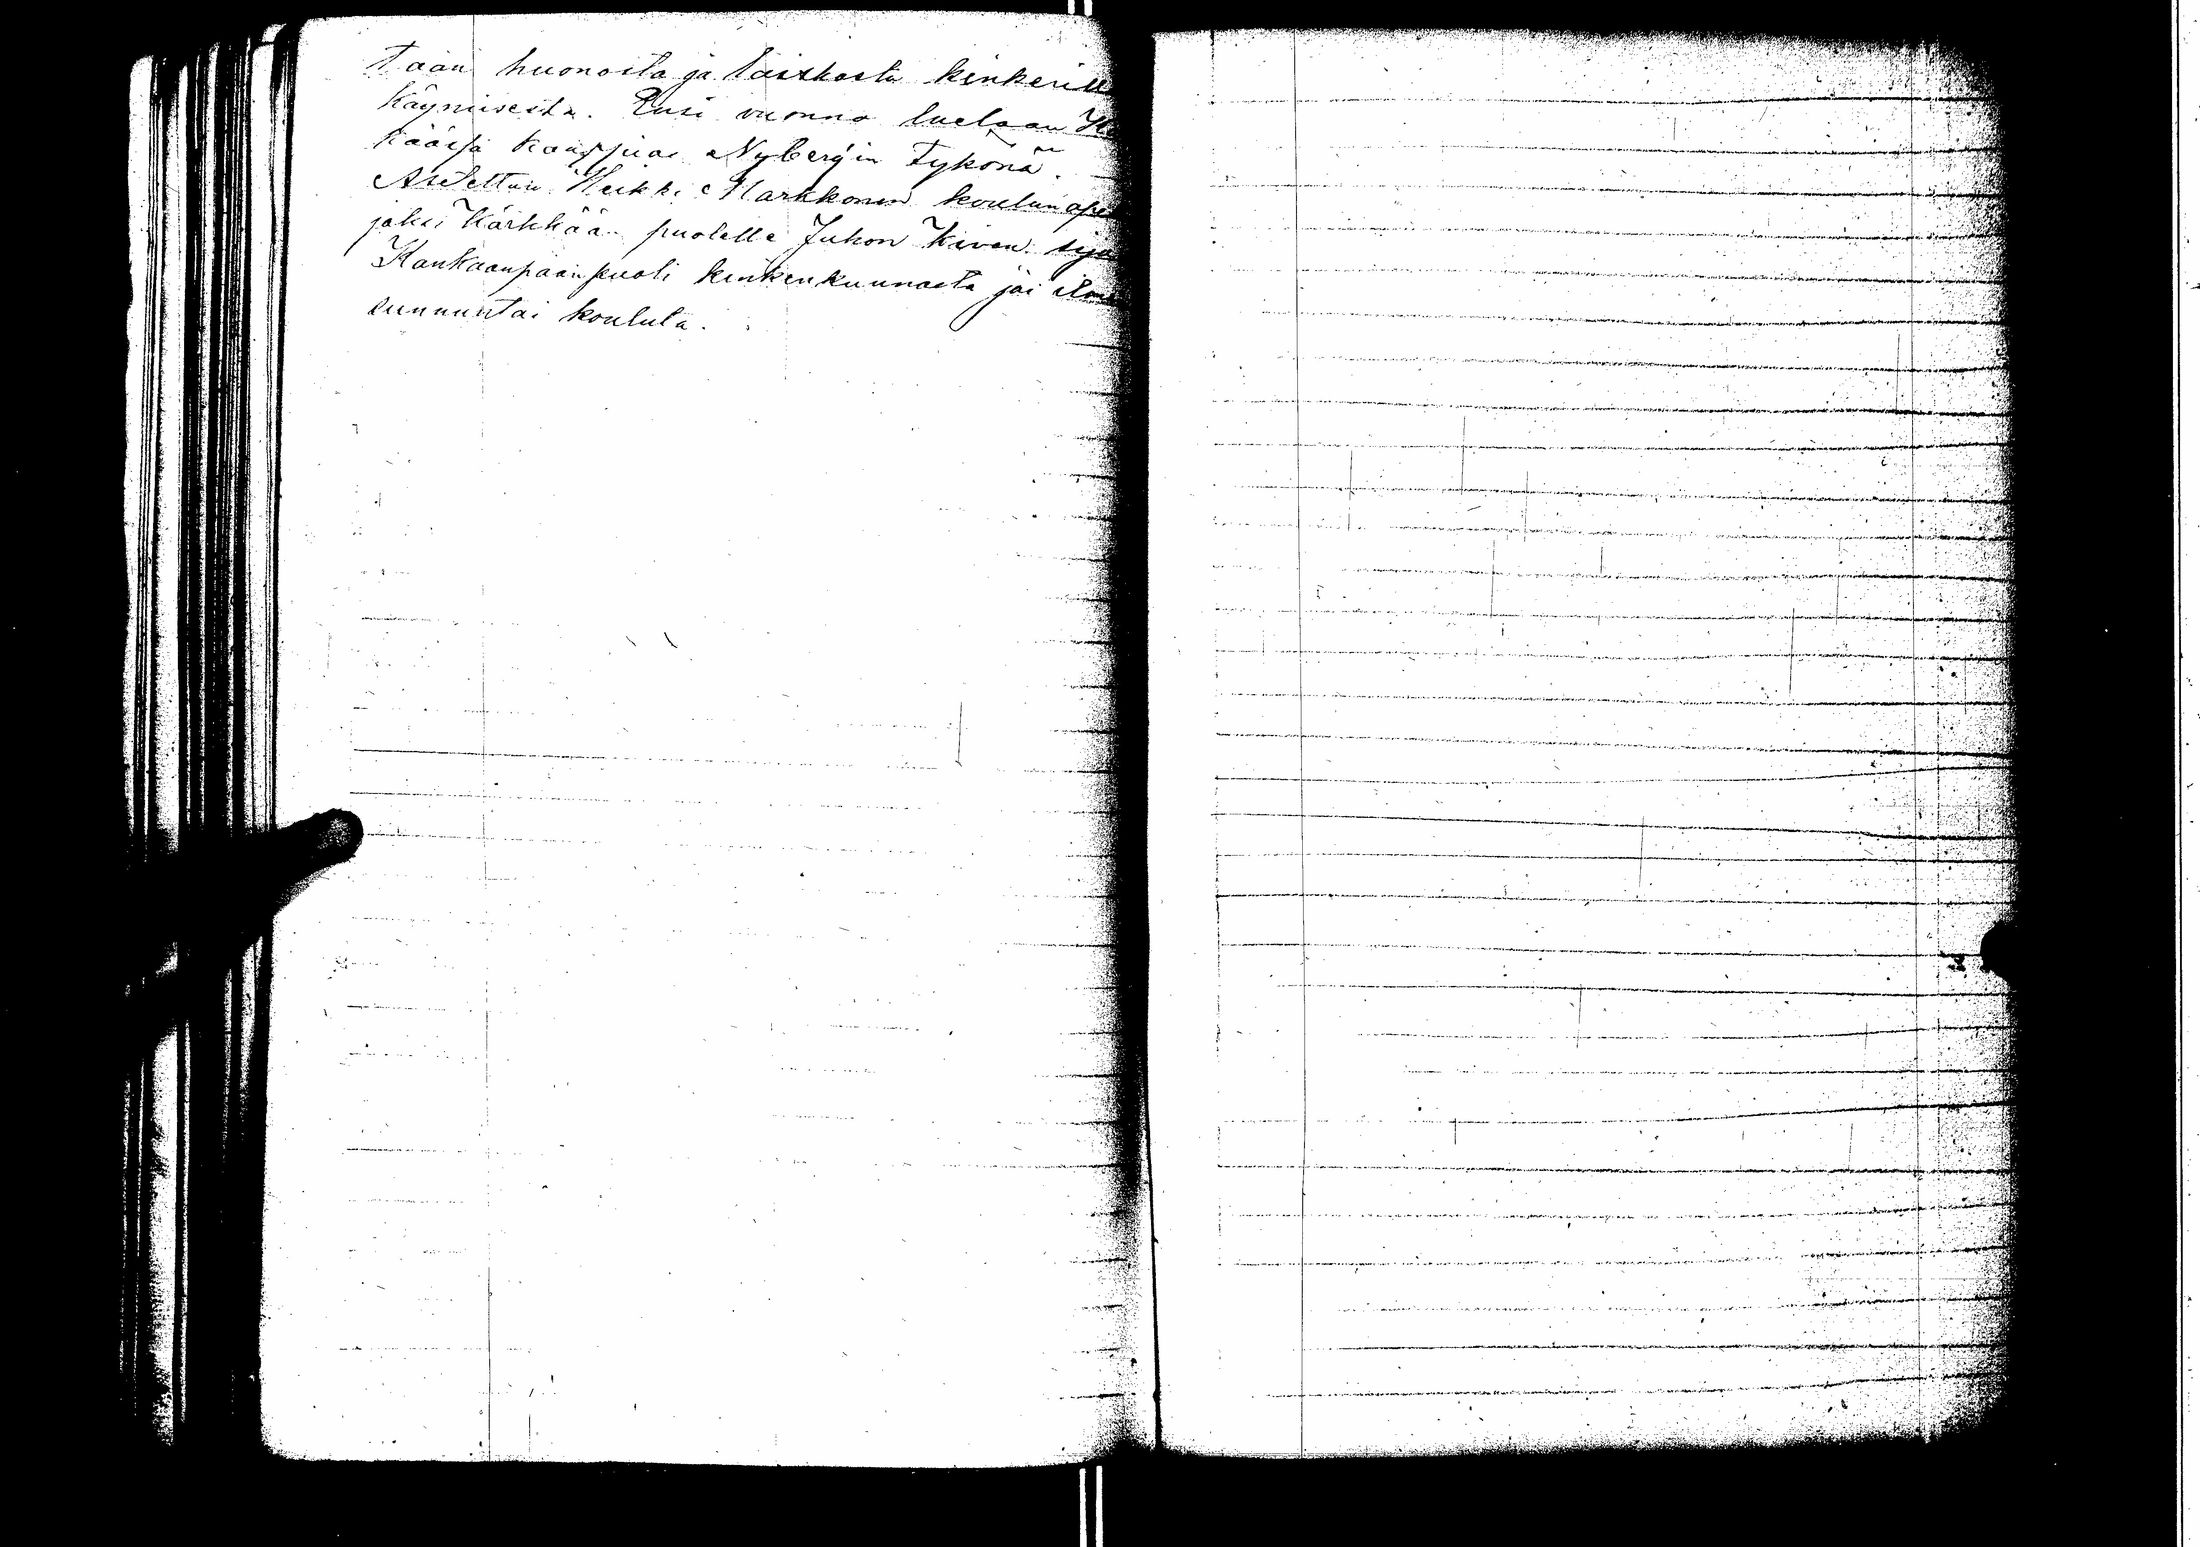 tään huonosta ja laiskasta kinkerille
käymisestä. Ensi vuonna luetaan
käässä kauppias Nyberg'in Tykönä.
Asetettiin Heikki Markkonen koulun ope
jaksi Kärkkään puolelle Juhon Kiven sija
Kankaanpään puoli kinkerikunnasta jäi ilma
sunnuntai koulula.